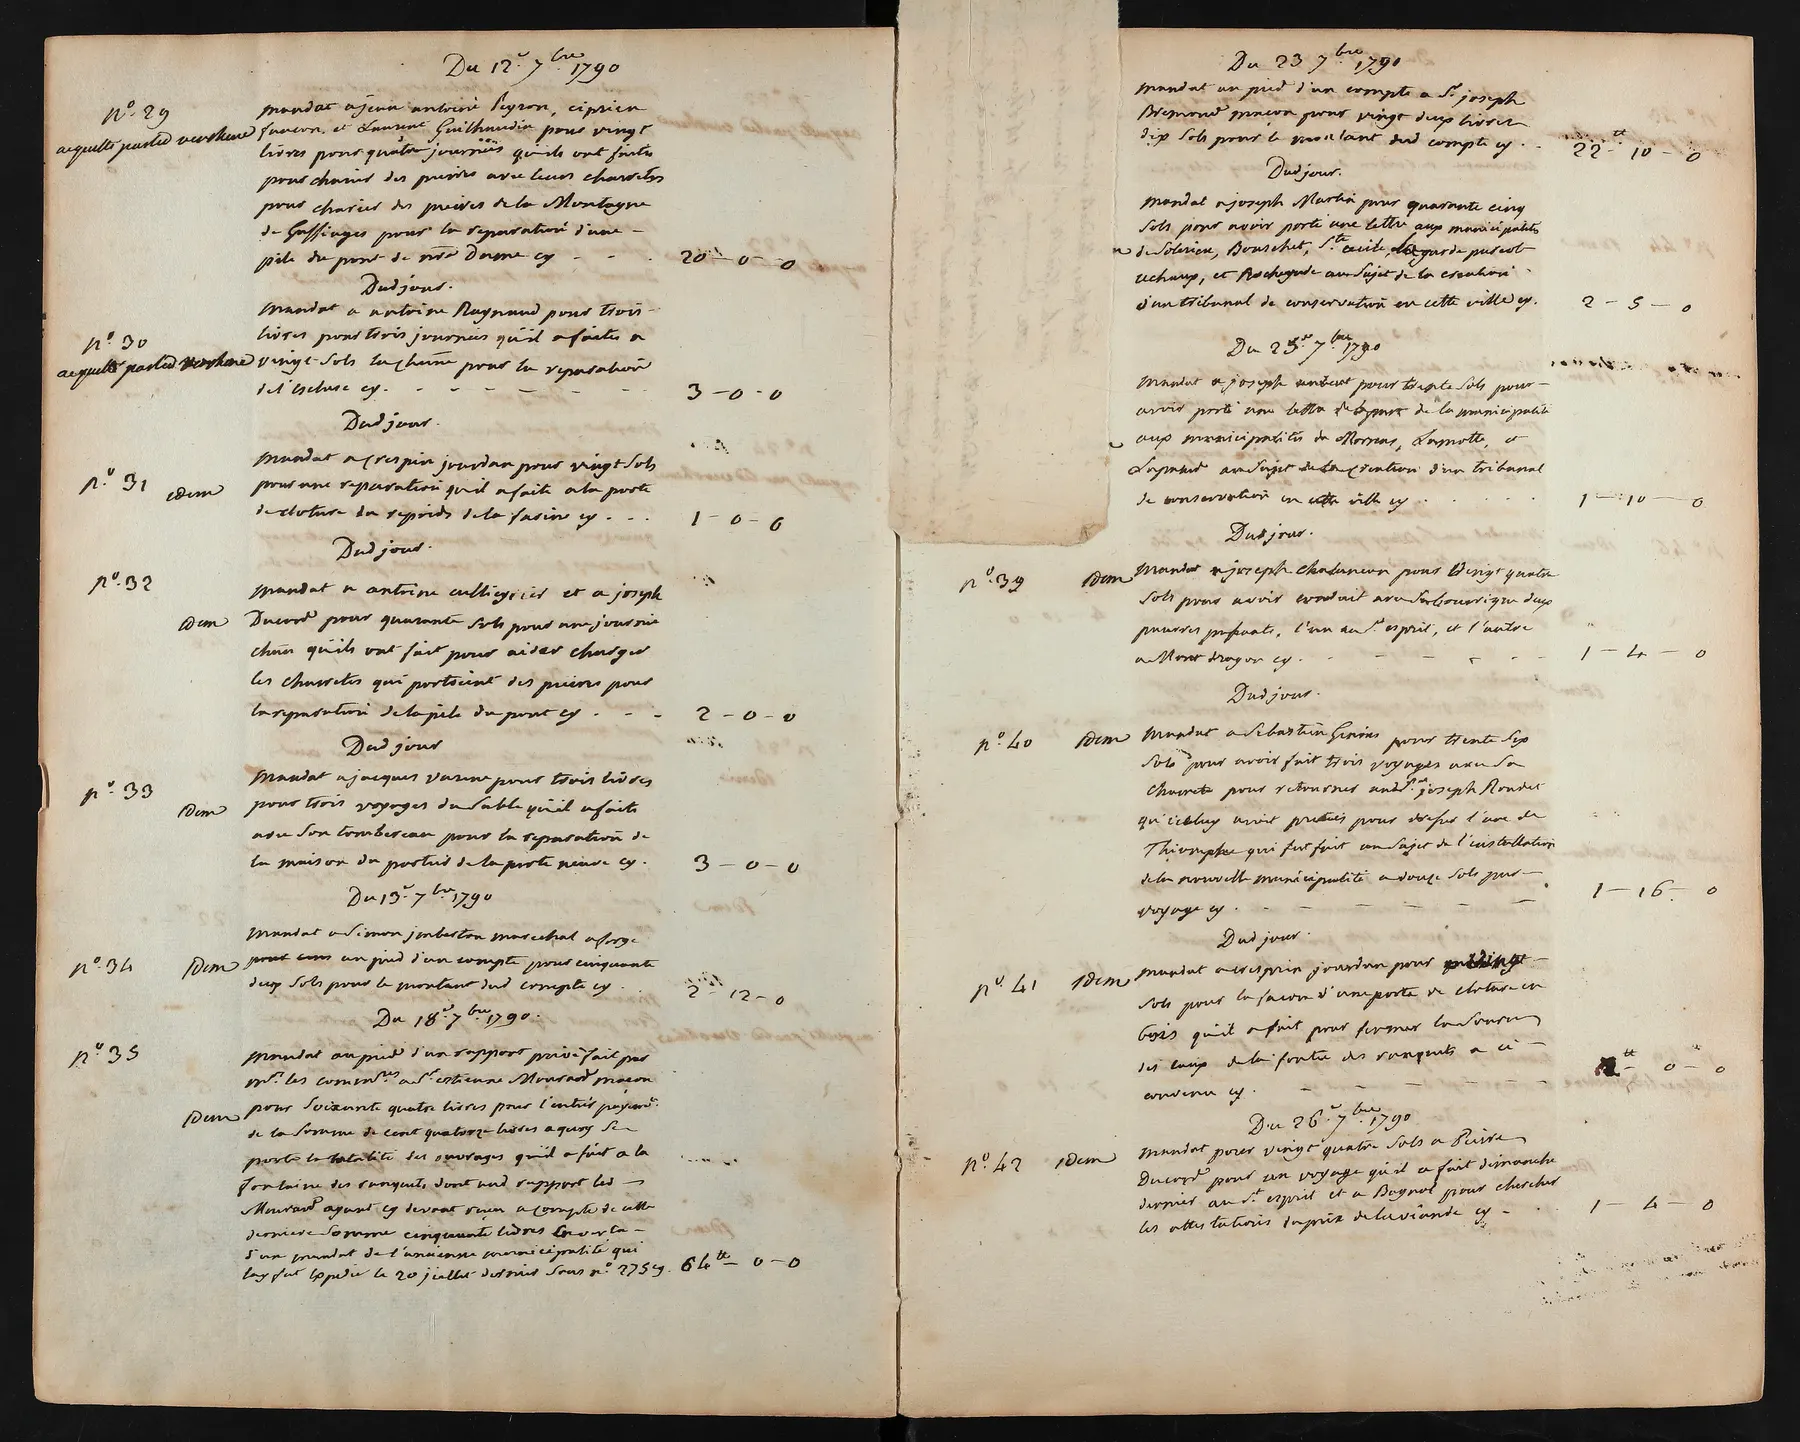 Du 12.e 7bre 1790
n.o 29
acquitté par led verchere
mandat a jean antoine Peyron, ciprien
faucon, et Laurent Guilhaudin pour vingt
livres pour quatre journées qu'ils ont faites
pour charier des pierres avec leurs charretes
pour charier des pierres de la Montagne
de Gaffiages pour la reparation d'une
pile du pont de nre Dame cy 20 - 0 - 0
Dud jour.
n.o 30
acquitté par led verchere
Mandat a antoine Raynaud pour trois
livres pour trois journées qu'il a faites a
vingt sols la chacune pour la reparation
de l'ecluse cy. 3 - 0 - 0
Dud jour.
n.o 31
idem
Mandat a crespin jourdan pour vingt sols
pour une reparation qu'il a faite a la porte
de cloture du repoids de la farine cy 1 - 0 - 0
Dud jour.
n.o 32
idem
mandat a antoine et a joseph
Ducord pour quarante sols pour une journée
chacun qu'ils ont fait pour aider charger
les charretes qui portoient des pierres pour
la reparation de la pile du pont cy 2 - 0 - 0
Dud jour
n.o 33
idem
Mandat a jacques varene pour trois livres
pour trois voyages du sable qu'il a faits
avec son tombereau pour la reparation de
la maison du portier de la porte neuve cy. 3 - 0 - 0
Du 13.e 7bre 1790
n.o 34
idem
Mandat a Simon imberton marechal a forge
un pied d'un compte pour cinquante
deux sols pour le montant dud compte cy 2 - 12 - 0
Du 18.e 7bre 1790.
n.o 35
idem
Mandat au pied d'un rapport privé fait par
mrs les commres a Sr etienne Mourard maçon
pour soixante quatre livres pour l'entier payemt
de la somme de cent quatorze livres a quoy se
porte la totalité des ouvrages qu'il a fait a la
fontaine des ranquets dont aud rapport led
Mourard ayant cy devant reçu a compte de cette
derniere somme cinquante livres en vertu
d'un mandat de l'ancienne municipalité qui
luy fut expedié le 20 juillet dernier sous n.o 275 cy. 64tt - 0 - 0
Du 23 7bre 1790
mandat au pied d'un compte a Sr joseph
Bremond maçon pour vingt deux livres
dix sols pour le montant dud compte cy 22tt - 10 - 0
Dud jour.
Mandat a joseph Martin pour quarante cinq
sols pour avoir porté une lettre aux municipalités
de Solerieu, Bouschet, Ste cecile, lagarde pareol
uchaux, et Rochegude au sujet de la creation
d'un tribunal de conservation en cette ville cy. 2 - 5 - 0
Du 25.e 7bre 1790
Mandat a joseph aubert pour trente sols pour
avoir porté une lettre de la part de la municipalité
aux municipalités de Mornas, Lamotte, et
Lapalud au sujet de la creation d'un tribunal
de conservation en cette ville cy 1 - 10 - 0
Dud jour.
n.o 39
idem
Mandat a joseph chabanean pour vingt quatre
sols pour avoir conduit avec sa bourrique deux
pauvres passants, l'un au St esprit, et l'autre
a Mont dragon cy. 1 - 4 - 0
Dud jour.
n.o 40
idem
Mandat a Sebastien Girins pour trente six
sols pour avoir fait trois voyages avec sa
charrete pour retourner aud Sr joseph Roudet
qu'icelluy avoit pretées pour dresser l'arc de
Thiomphe qui fut fait au sujet de l'installation
de la nouvelle municipalité a douze sols par
voyage cy. 1 - 16 - 0
Dud jour.
n.o 41
idem
Mandat a crespin jourdan pour vingt
sols pour la façon d'une porte de cloture en
bois qu'il a fait pour fermer la source
des eaux de la fontne des ranquets a ci
convenu cy. tt - 0 - 0
Du 26.e 7bre 1790
n.o 42
idem
Mandat pour vingt quatre sols a Pierre
Ducord pour un voyage qu'il a fait dimanche
dernier au St esprit et a Bagnol pour chercher
les attestations du prix de la viande cy 1 - 4 - 0